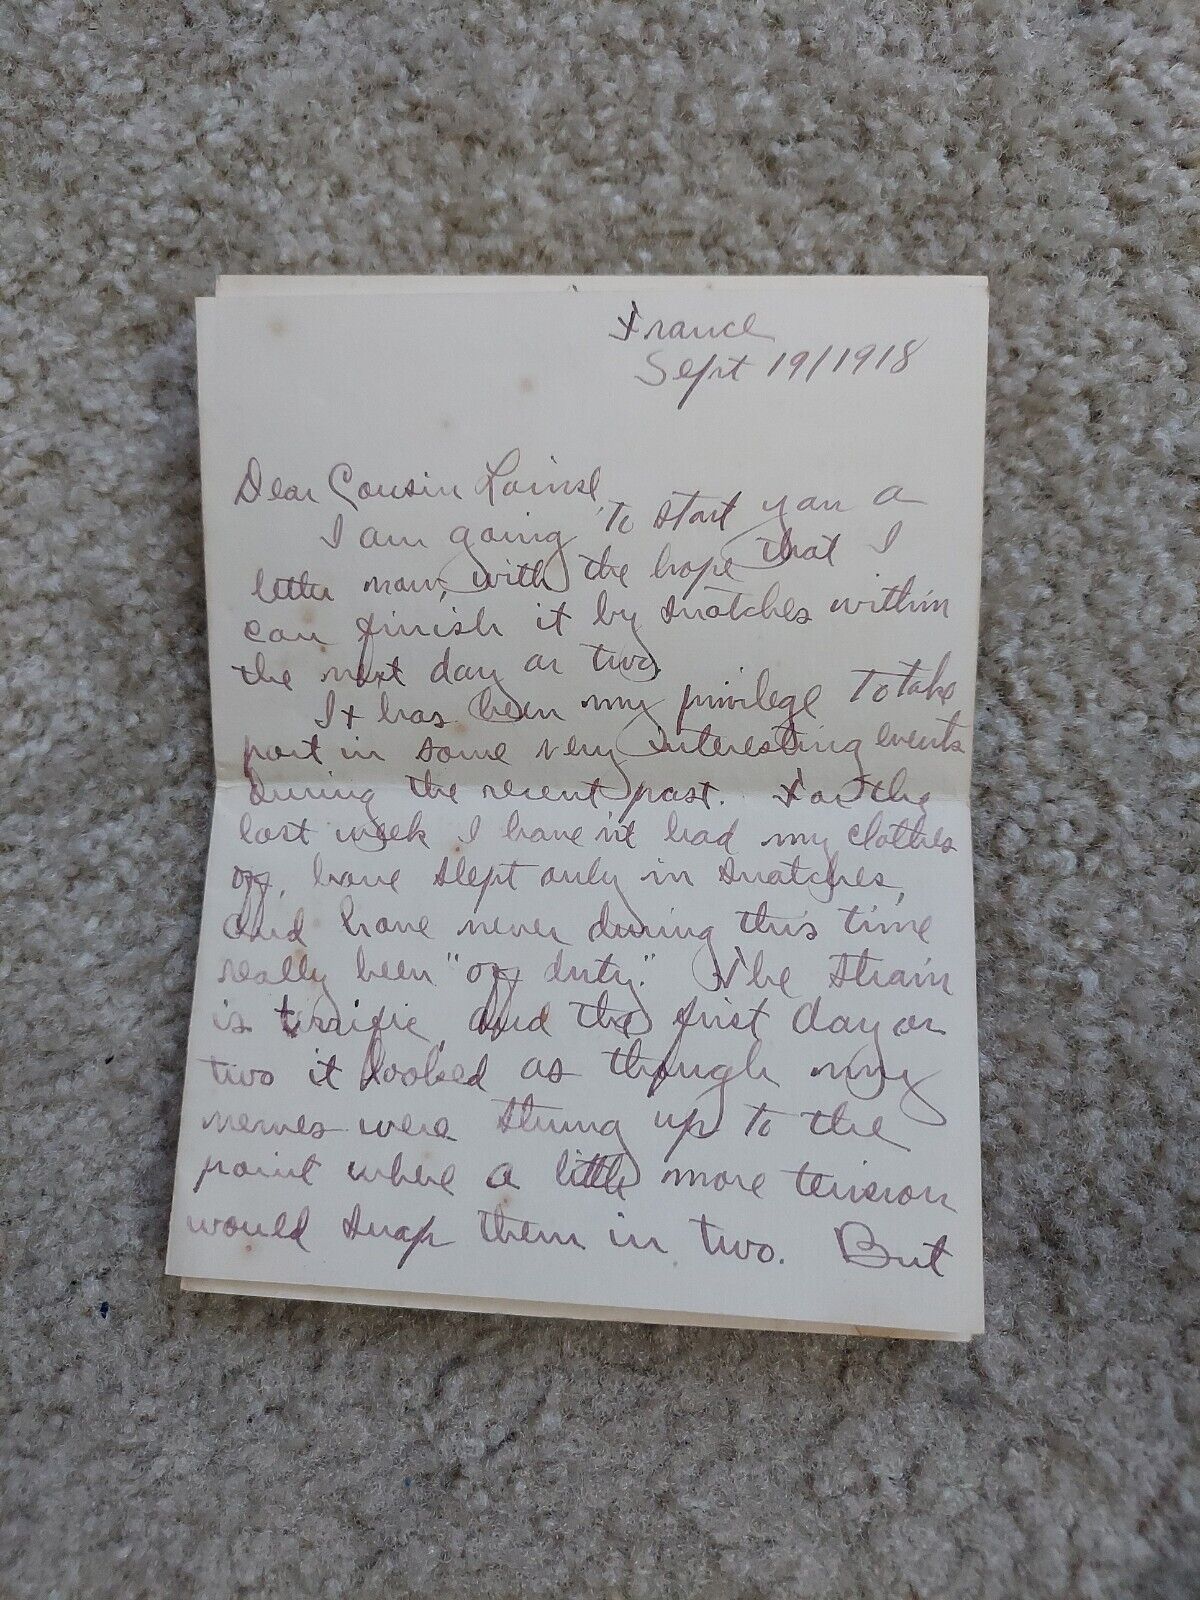 France
Sept 19/1918
Dear Cousin Louise,
I am going to start you a
letter now, with the hope that I
can finish it by snatches within
the next day or two.
It has been my privilege to take
part in some very interesting events
during the recent past. For the
last week I haven't had my clothes
off, have slept only in snatches,
and have never during this time
really been "off duty." The strain
is terrific, and the first day or
two it looked as though my
nerves were strung up to the
point where a little more tension
would snap them in two. But